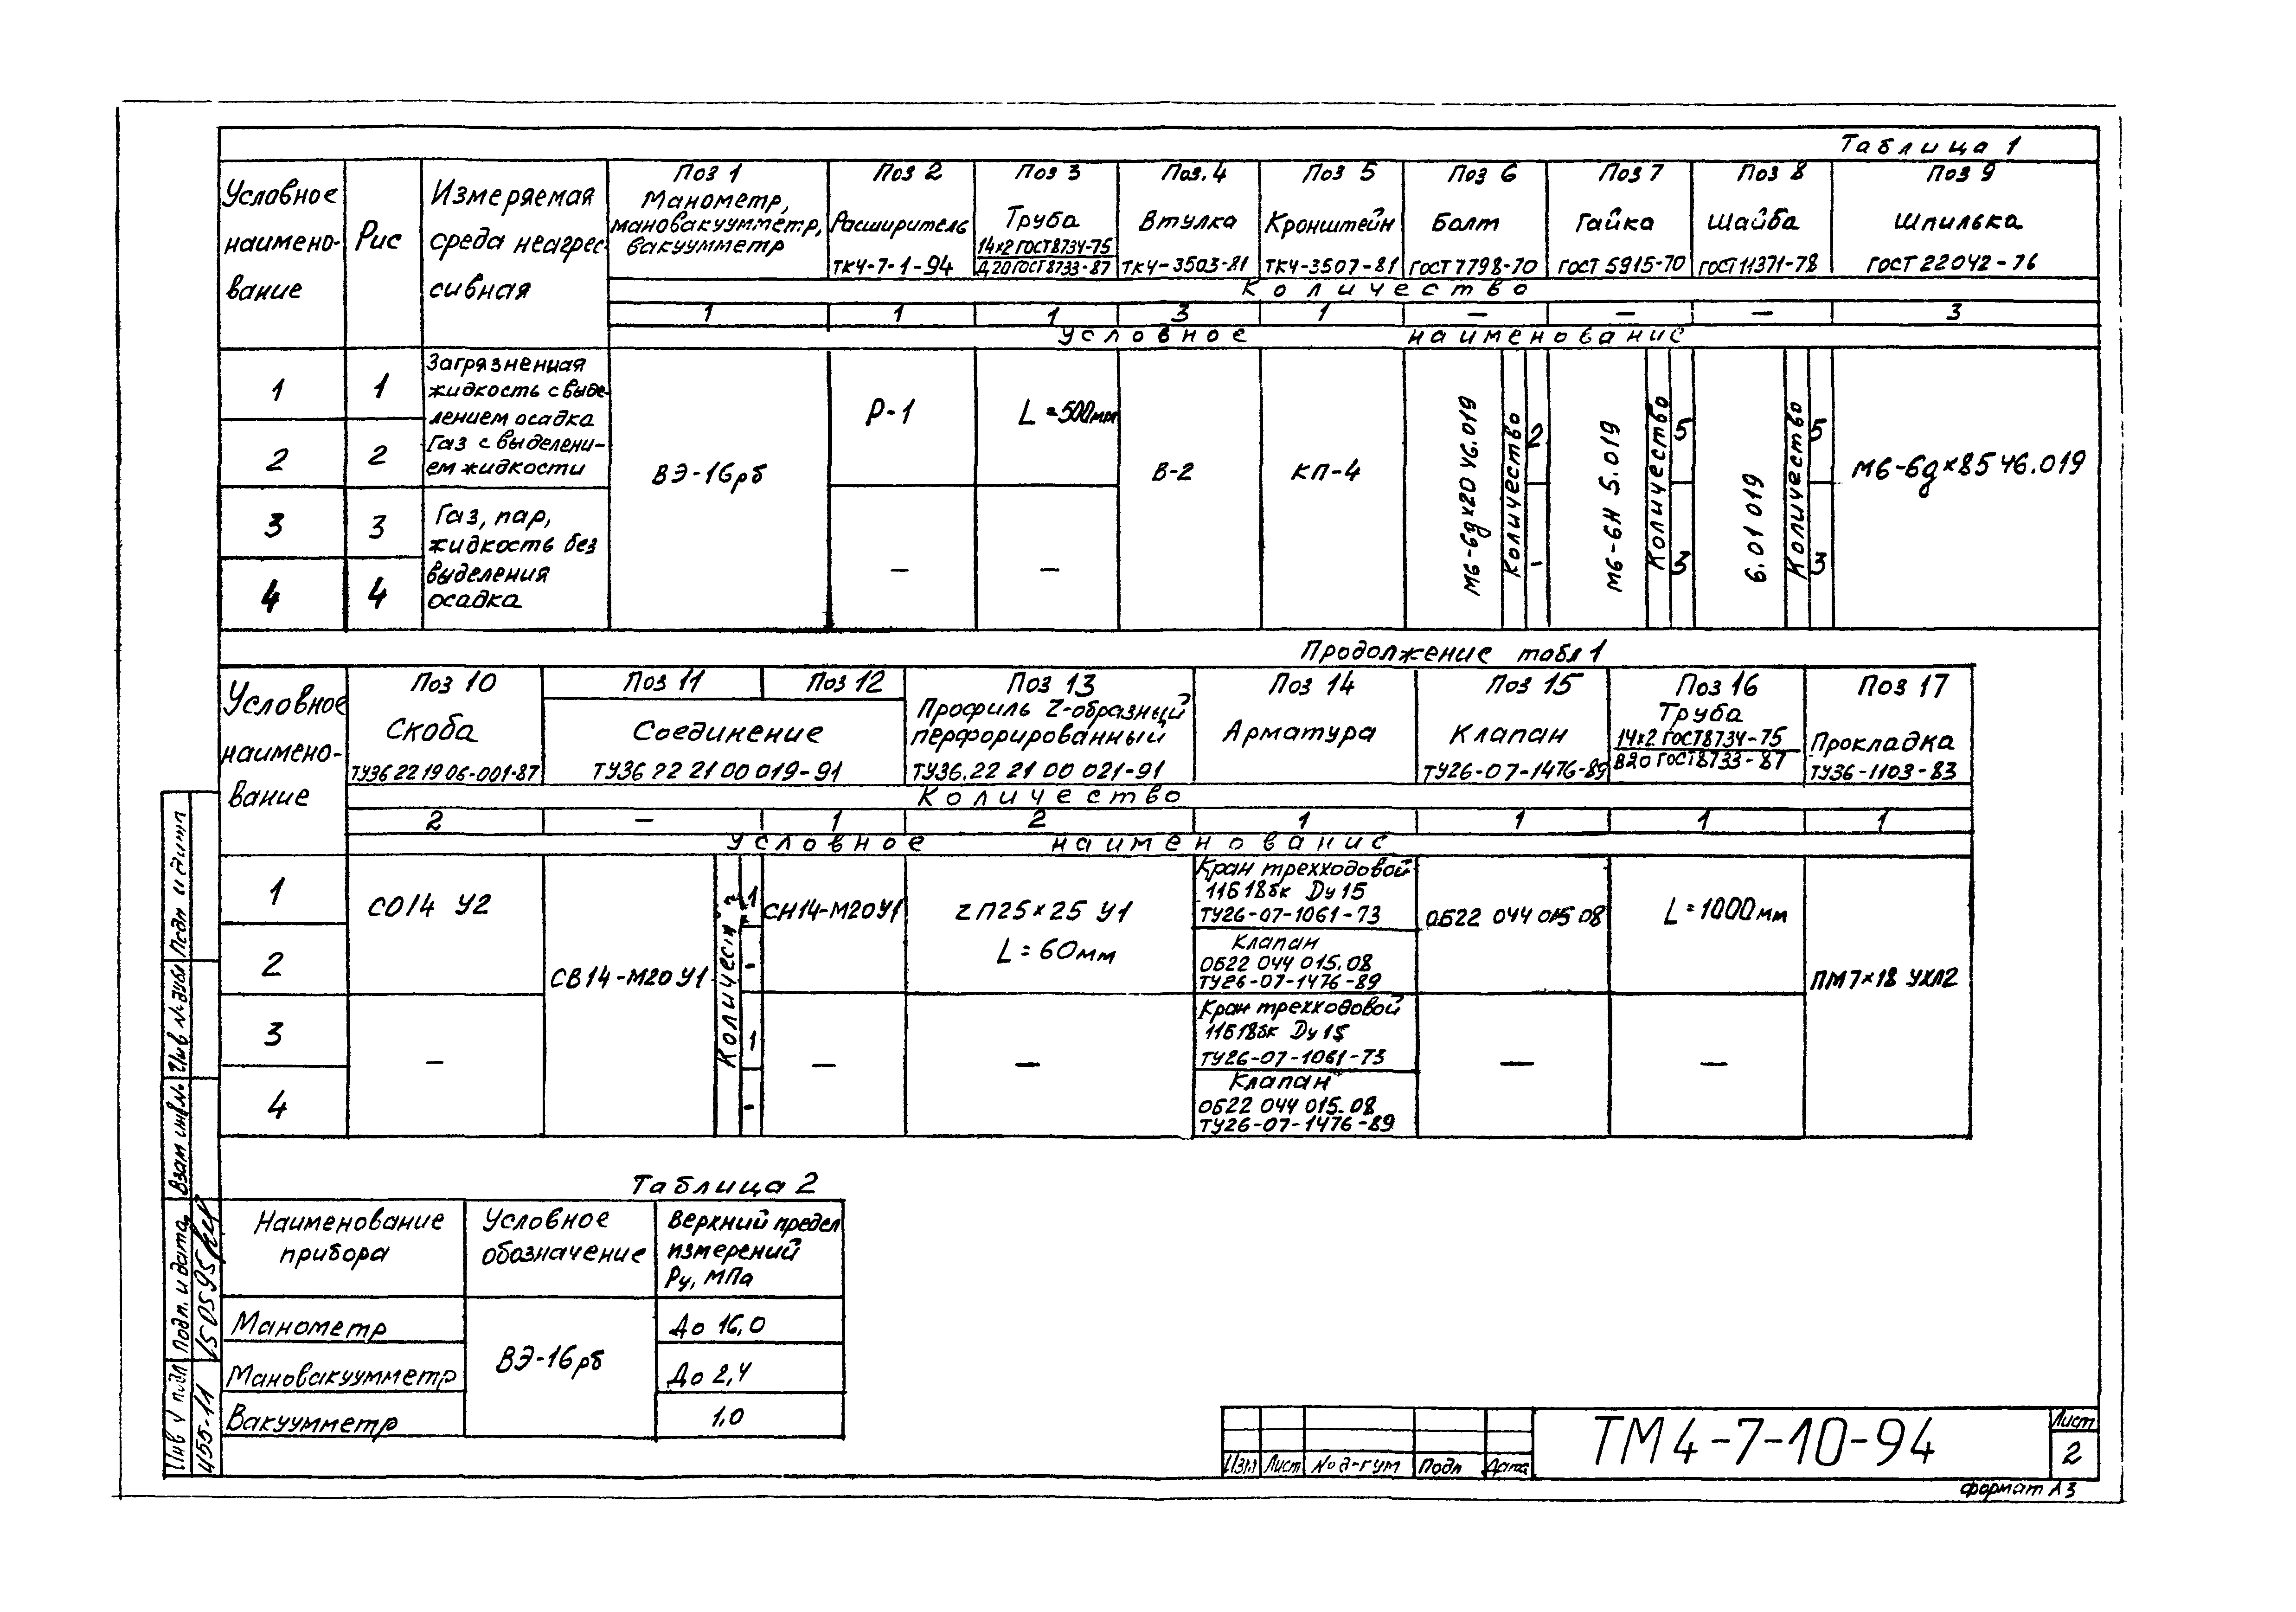 Таблица 1
Условное наимено- вание
Рис
Измеряемая среда неагрес сивная
Поз 1 Манометр, мановакуумметр, вакуумметр
Поз 2 Расширитель ТК4-7-1-94
Поз 3 Труба 14×2 ГОСТ 8734-75 Д20 ГОСТ 8733-87
Поз. 4 Втулка ТК4-3503-81
Поз 5 Кронштейн ТК4-3507-81
Поз 6 Болт ГОСТ 7798-70
Поз 7 Гайка ГОСТ 5915-70
Поз 8 Шайба ГОСТ 11371-78
Поз 9 Шпилька ГОСТ 22042-76
Количество
1 1 1 3 1 – – – 3
Условное наименование
1 1 Загрязненная жидкость с выде- лением осадка
2 2 Газ с выделени- ем жидкости
3 3 Газ, пар, жидкость без выделения осадка
4 4
ВЭ-16рб
Р-1
–
L=500мм
–
В-2
КП-4
М6-6g×20 46.019
Количество
2
-
М6-6Н 5.019
Количество
5
3
6.01 019
Количество
5
3
М6-6g×85 46.019
Продолжение табл 1
Условное наимено- вание
Поз 10 Скоба ТУ36 22 19 06-001-87
Поз 11 Поз 12
Соединение ТУ36 22 21 00 019-91
Поз 13 Профиль Z-образный перфорированный ТУ36.22 21 00 021-91
Поз 14 Арматура
Поз 15 Клапан ТУ26-07-1476-89
Поз 16 Труба 14×2 ГОСТ 8734-75 В20 ГОСТ 8733-87
Поз 17 Прокладка ТУ36-1103-83
Количество
2 – 1 2 1 1 1 1
Условное наименование
1
2
3
4
СО14 У2
–
СВ14-М20 У1
1
-
1
-
СН14-М20У1
–
ZП25×25 У1
L=60мм
–
Кран трехходовой
11Б18бк Dу 15
ТУ26-07-1061-73
Клапан
ОБ22 044 015.08
ТУ26-07-1476-89
Кран трехходовой
11Б18бк Dу 15
ТУ26-07-1061-73
Клапан
ОБ22 044 015.08
ТУ26-07-1476-89
ОБ22 044 015 08
–
L=1000мм
–
ПМ7×18 УХЛ2
Таблица 2
Наименование прибора
Условное обозначение
Верхний предел измерений Ру, МПа
Манометр
Мановакуумметр
Вакуумметр
ВЭ-16рб
До 16,0
До 2,4
1,0
Подп и дата
Инв № дубл
Взам инв №
Подп. и дата
15 05 95
Инв № подл
455-11
Изм Лист № док-м Подп Дата
ТМ4-7-10-94
Лист
2
формат А3